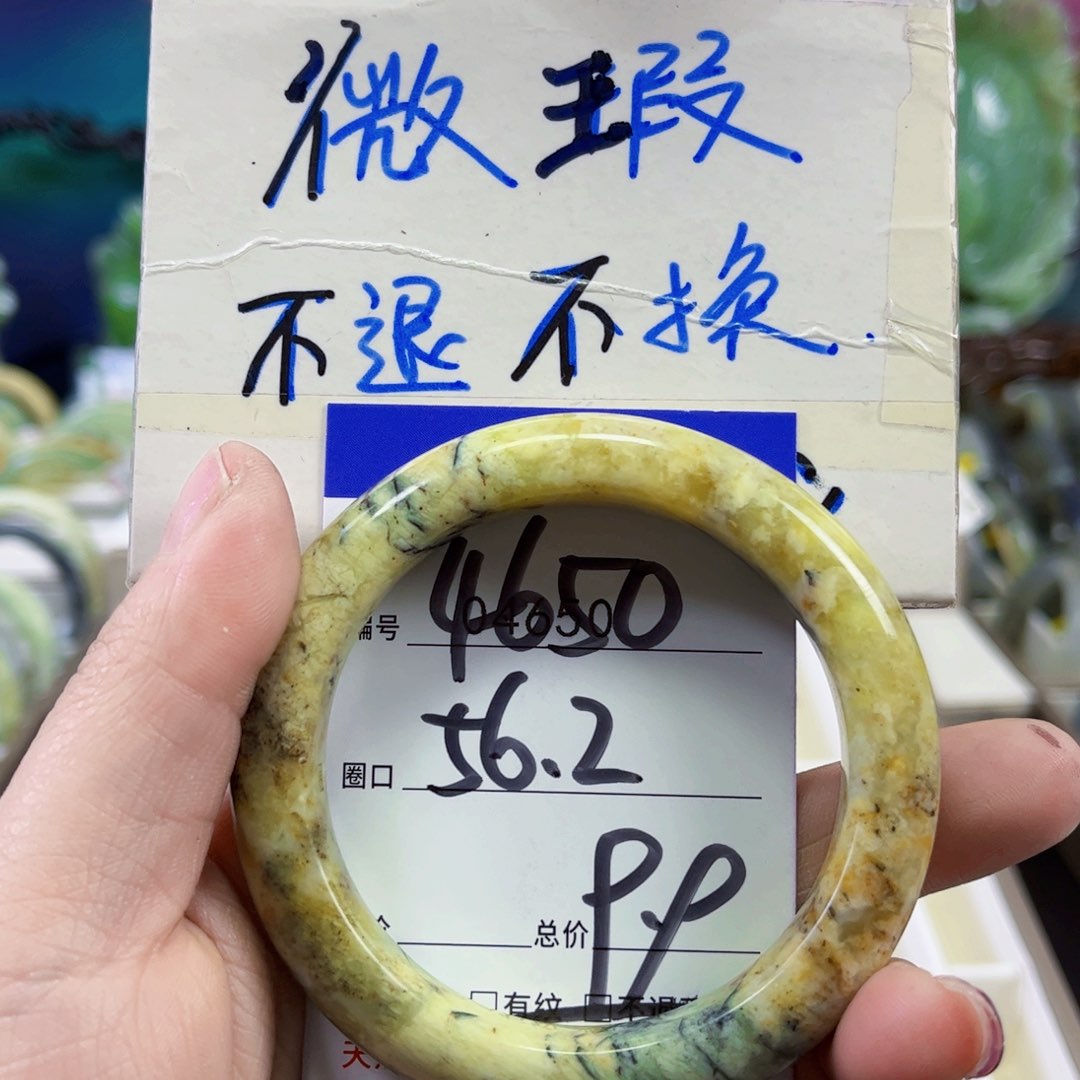 微瑕
不退不换.
4650
编号 04650
圈口 56.2
总价
□有纹 □不退
天